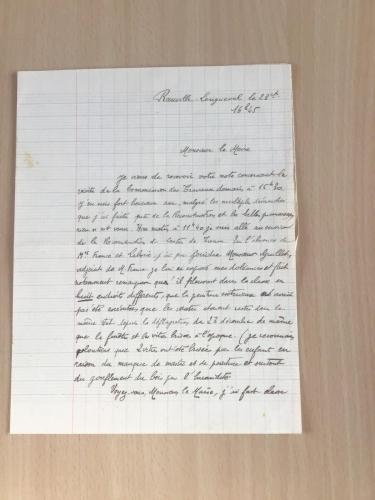 Longueval le 28
16h45
Monsieur le Maire
je viens de recevoir votre note concernant la
visite de la Commission des Travaux demain à 15h30.
J'en suis fort heureux car, malgré les multiples démarches
que j'ai faites près de la Reconstruction et les belles promesses
rien n'est venu. Ce matin à 11h40 je suis allé au
de la Reconstruction de . En l'absence de
Mrs France et j'ai pu joindre Monsieur Guillot,
adjoint de M. France je lui ai exposé mes doléances et fait
notamment remarquer qu'il pleuvait dans la classe en
huit endroits différents, que la peinture extérieure n'avait
pas été exécutée, que les étaient restés dans le
même état depuis la déflagration du 23 décembre de même
que la fenêtre et les vitres brisées à l'époque. (je reconnais
volontiers que 2 vitres ont été brisées par les enfants en
raison du manque de mastic et de peinture et surtout
du gonflement du bois par l'humidité
Voyez-vous, Monsieur le Maire, j'ai fait dans